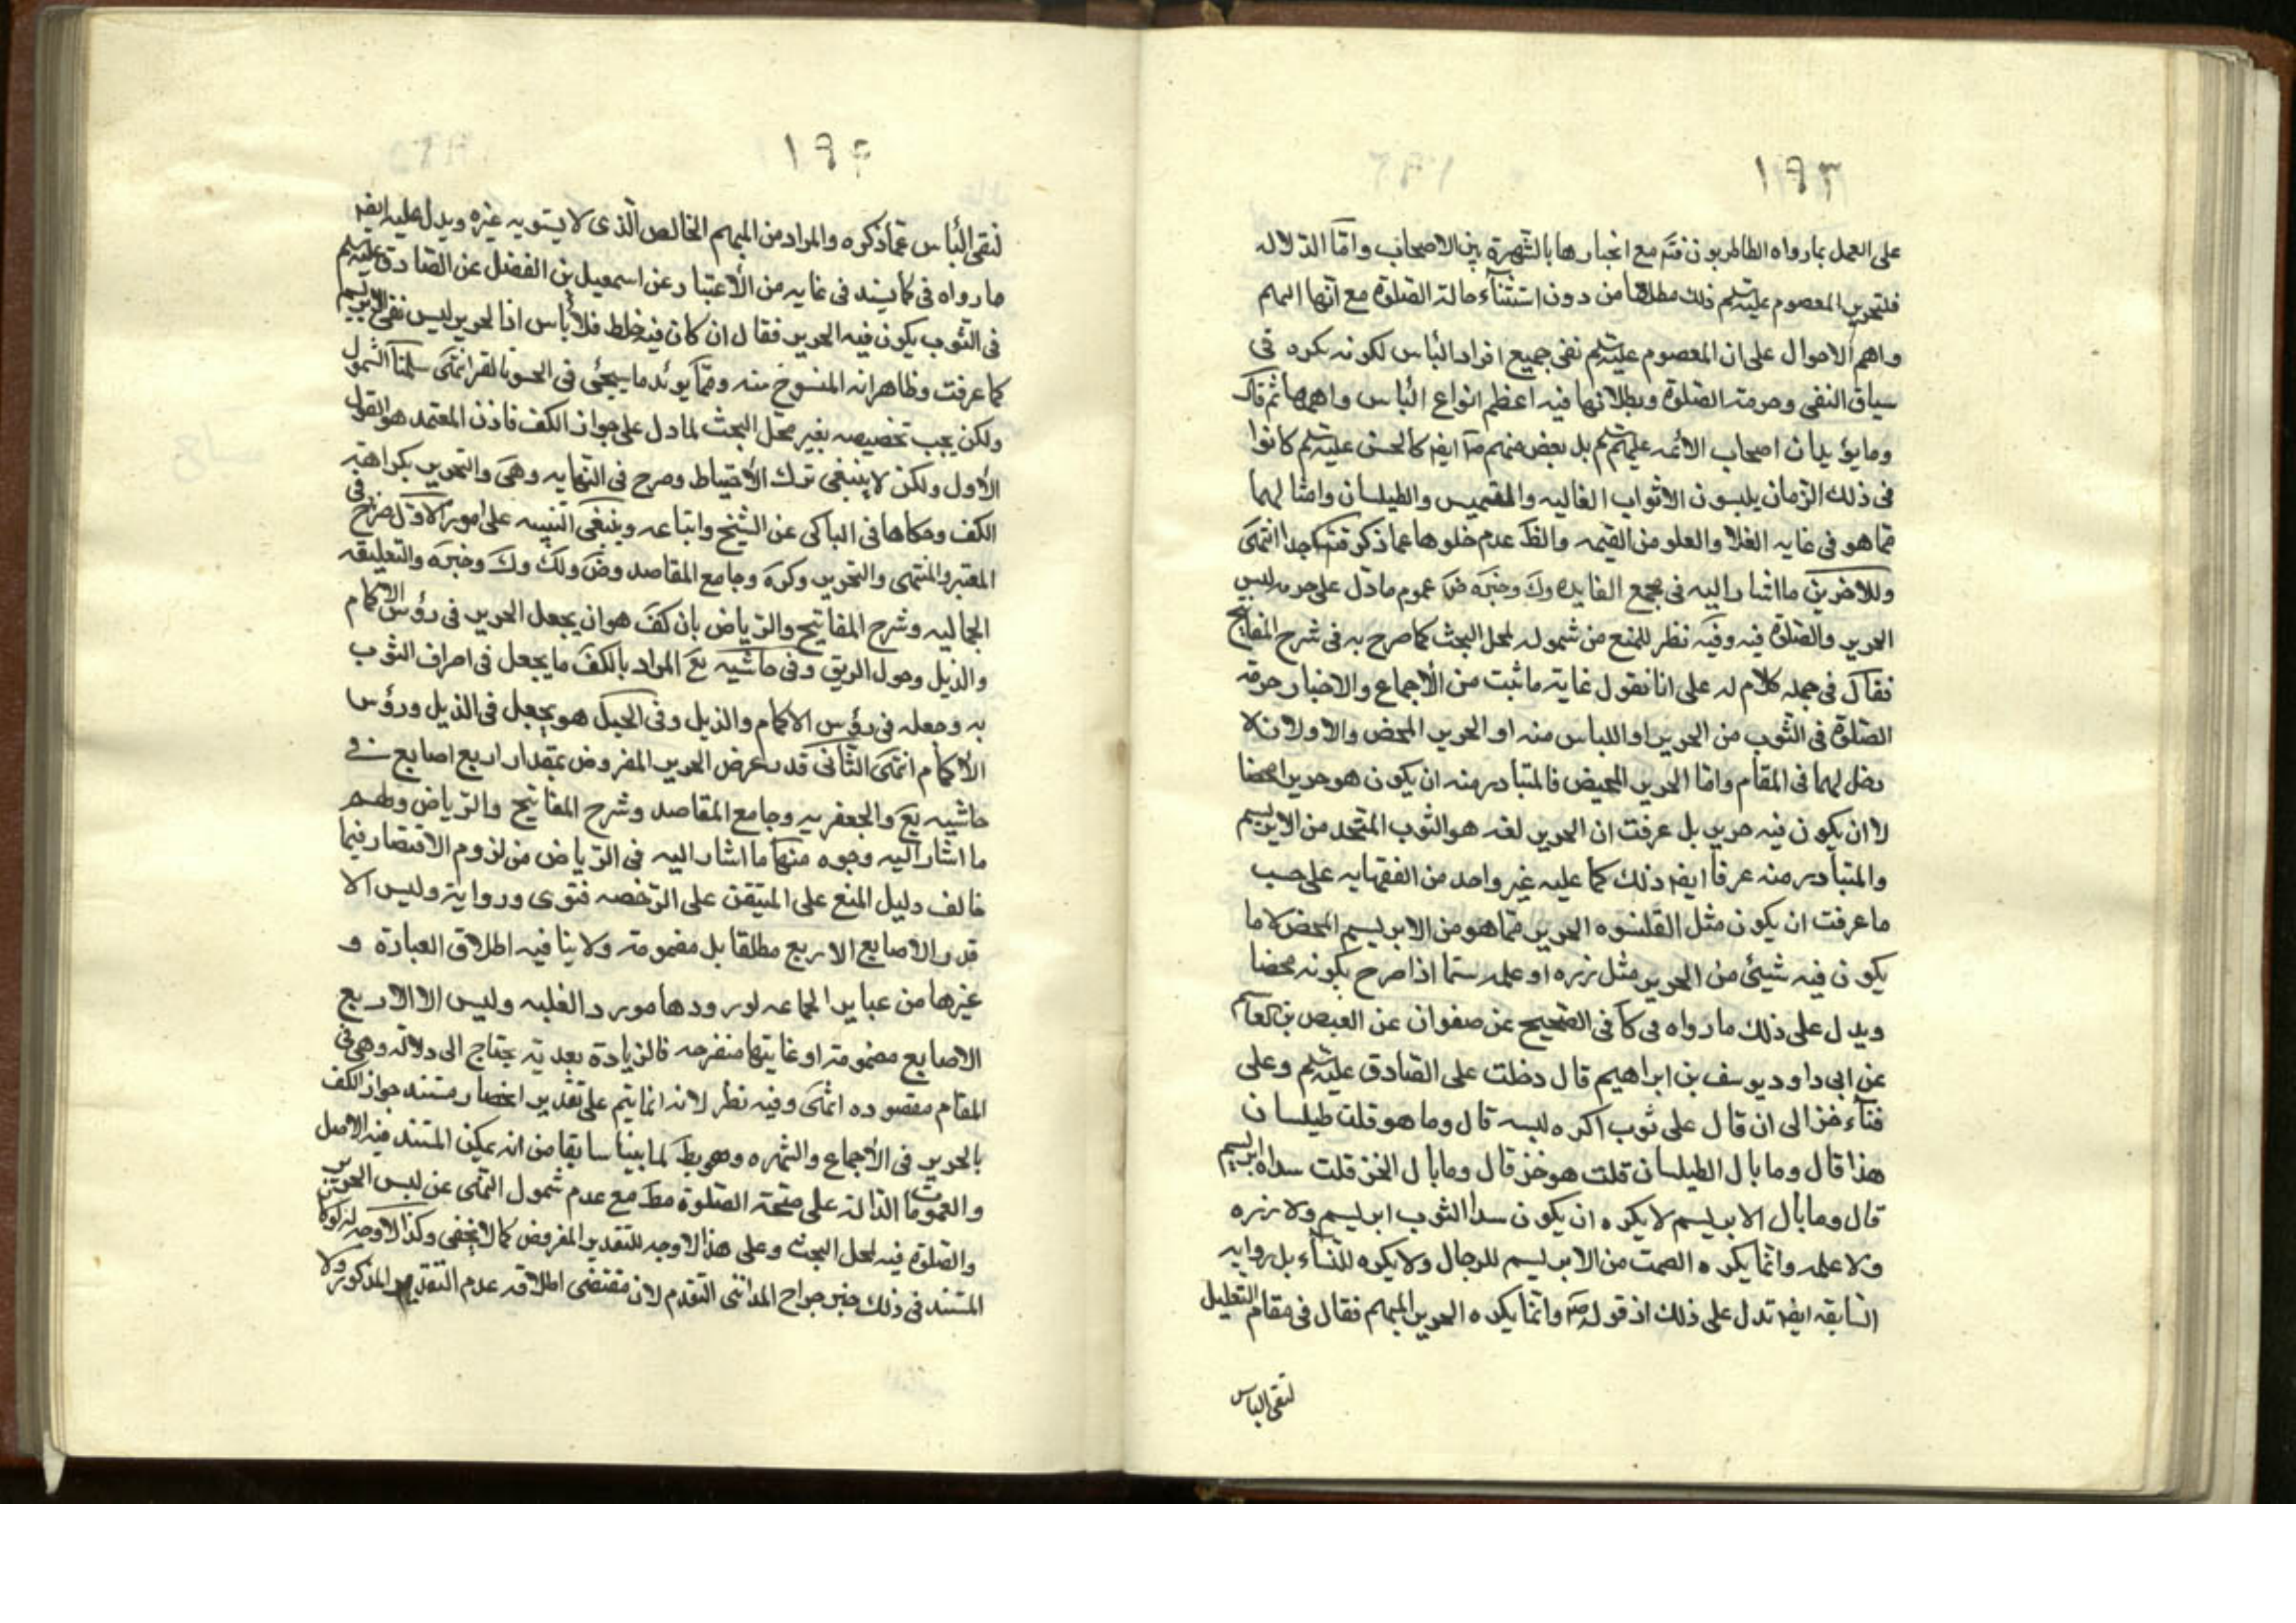 ١٩٣
على العمل بما رواه الطاطريون فتم مع انجبارها بالشهرة بين الاصحاب واما الدلاله
فلتحرير المعصوم عليه السلم ذلك مطلقا من دون استثناء حالة الصلوة مع انها المهم
واهم الاحوال على ان المعصوم عليه السلم نفى جميع افراد البأس لكونه نكره فى
سياق النفى وحرمته الصلوة وبطلانها فيه اعظم انواع البأس واهمها ثم قال
ومايؤيد ان اصحاب الائمه عليهم السلم بل بعض منهم ايضا كالحسن عليه السلم كانوا
فى ذلك الزمان يلبسون الاثواب الغاليه والقميص والطيلسان وامثالهما
مما هو فى غايه الغلا والعلو من القيمه والظ عدم خلوها عما ذكر فتم جدا انتهى
وللاخرين ما اشار اليه فى مجمع الفايده وك وخيره من عموم مادل على حرمه لبس
الحرير والصلوة فيه وفيه نظر للمنع من شموله لمحل البحث كما صرح به فى شرح المفاتيح
فقال فى جمله كلام له على انا نقول غاية ما ثبت من الأجماع والاخبار حرمة
الصلوة فى الثوب من الحرير او اللباس منه او الحرير المحض والاولان لا
دخل لهما فى المقام واما الحرير المحض فالمتبادر منه ان يكون هو حريرا محضا
لا ان يكون فيه حرير بل عرفت ان الحرير لغه هو الثوب المتخذ من الابريسم
والمتبادر منه عرفا ايضا ذلك كما عليه غير واحد من الفقهايه على حسب
ما عرفت ان يكون مثل القلنسوه الحرير مما هو من الابريسم المحض لا ما
يكون فيه شيئ من الحرير مثل زره او علمه سيما اذا صرح بكونه محضا
ويدل على ذلك ما رواه فى كا فى الصحيح عن صفوان عن العيص بن القاسم
عن ابى داود يوسف بن ابراهيم قال دخلت على الصادق عليه السلم وعلى
قباء خز الى ان قال على ثوب اكره لبسه قال وما هو قلت طيلسان
هذا قال وما بال الطيلسان قلت هو خز قال وما بال الخز قلت سداه ابريسم
قال وما بال الابريسم لا يكره ان يكون سدا الثوب ابريسم ولا زره
ولا علمه وانما يكره الصمت من الابريسم للرجال ولا يكره للنساء بل روايه
السابقه ايضا تدل على ذلك اذ قوله وانما يكره الحرير المبهم فقال فى مقام التعليل
لنفى الباس
١٩٤
لنفى البأس عما ذكره والمراد من المبهم الخالص الذى لا يستويه غيره ويدل عليه ايضا
ما رواه فى كا بسند فى غايه من الأعتبار عن اسمعيل بن الفضل عن الصادق عليه السلم
فى الثوب يكون فيه الحرير فقال ان كان فيه خلط فلا بأس اذا لحرير ليس نفى الابريسم
كما عرفت وظاهرانه المنسوخ منه ومما يوئد ما سيجئى فى الحسو بالقز انتهى سلمنا الشمول
ولكن يجب تخصيصه بغير محل البحث لما دل على جواز الكف فاذن المعتمد هو القول
الأول ولكن لا ينبغى ترك الأحتياط وصرح فى النهايه وهى والتحرير بكراهة
الكف وحكاها فى الباكى عن الشيخ واتباعه وينبغى التنبيه على امور الاول صرح فى
المعتبر والمنتهى والتحرير وكره وجامع المقاصد وض ولك وك وخيره والتعليقه
الجماليه وشرح المفاتيح والرياض بان كف هو ان يجعل الحرير فى رؤس الاكمام
والذيل وحول الزيق وفى حاشيه يع المراد بالكف ما يجعل فى اطراف الثوب
به وجعله فى رؤس الاكمام والذيل وفى الحبل هو يجعل فى الذيل ورؤس
الأكمام انتهى الثانى قدر عرض الحرير المفروض بمقدار اربع اصابع فى
حاشيه يع والجعفريه وجامع المقاصد وشرح المفاتيح والرياض ولهم
ما اشار اليه وجوه منها ما اشار اليه فى الرياض من لزوم الاقتصار فيما
خالف دليل المنع على المتيقن على الرخصه فتوى ورواية وليس الا
قدر الاصابع الاربع مطلقا بل مضمومة ولا ينافيه اطلاق العبارة و
غيرها من عباير الجماعه لورودها مورد الغلبه وليس الا الاربع
الاصابع مضمومة او غايتها منفرجه فالزيادة بعدية يحتاج الى دلاله وهى فى
المقام مفقوده انتهى وفيه نظر لانه انما يتم على تقدير انحصار مستند جواز الكف
بالحرير فى الأجماع والشهره وهو بط لما بينا سابقا من انه يمكن المستند فيه الاصل
والعمومات الداله على صحة الصلوة مط مع عدم شمول النهى عن لبس الحرير
والصلوة فيه لمحل البحث وعلى هذا الاوجه للتقدير المفروض كما لا يخفى وكذا الاوجه له لو كان
المستند فى ذلك خبر جراح المدائنى المتقدم لان مقتضى اطلاقه عدم التقدير المذكور ولا